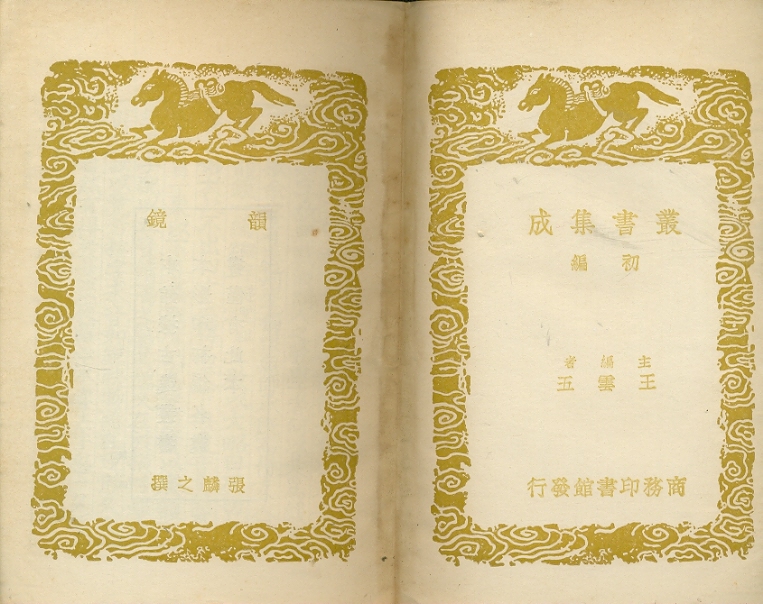 叢書集成
初編
主編者
王雲五
商務印書館發行
韻鏡
張麟之撰